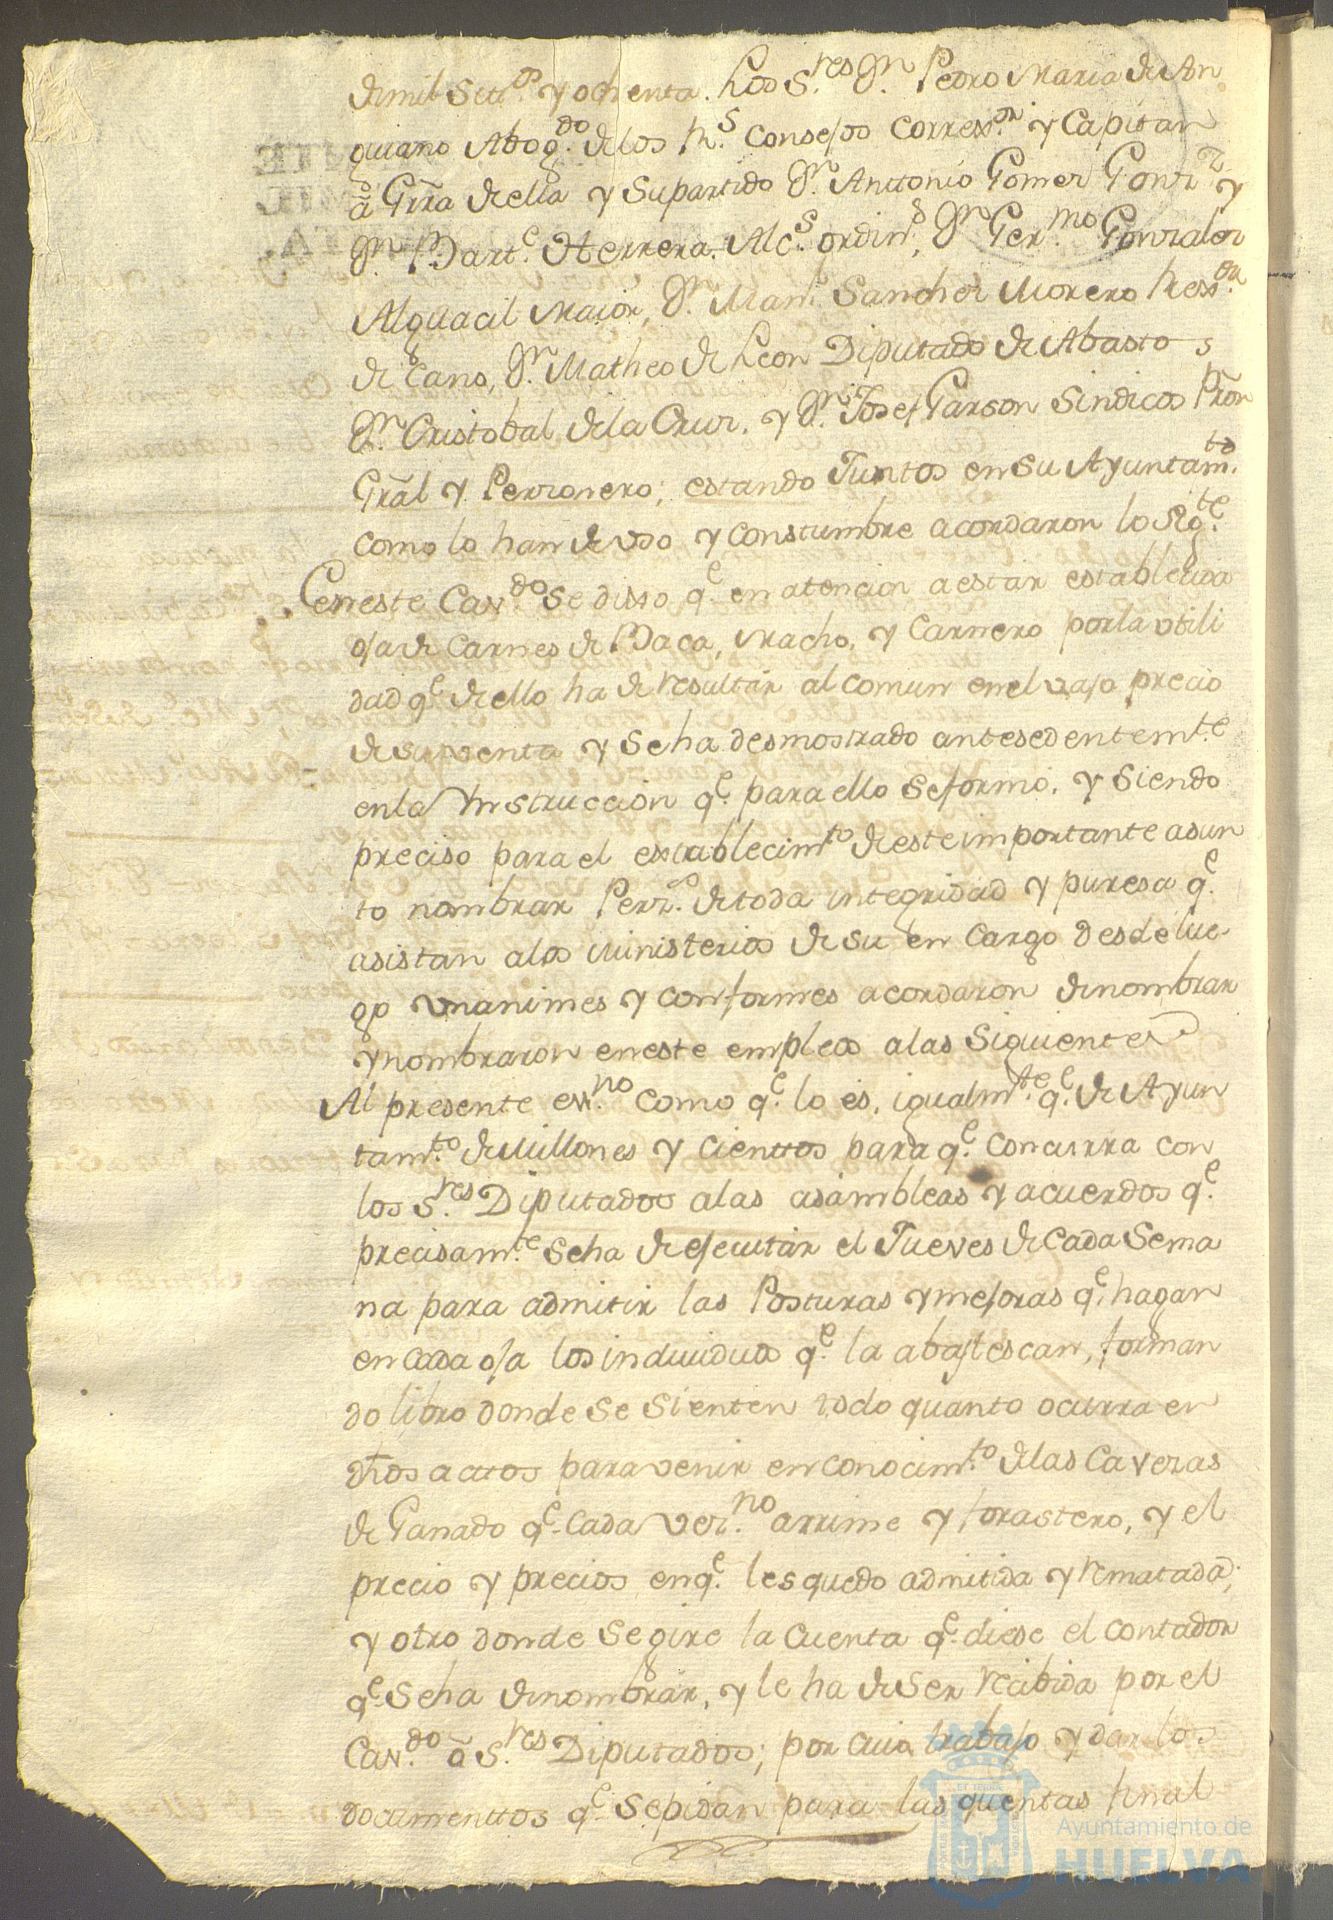 de mil Setz.os y ochenta. Los S.res Dn. Pedro Maria de An
guiano Abog.do de los R.s Consejos Correx.or y Capitan
â Grra de ella y Su partido Dn. Anttonio Gomez Gonz.z y
Dn. Bart.e Herrera. Alc.s ordin.s, Dn Ger.mo Gonzalez
Alguacil Maior, Dn. Man.l Sanchez Morero Rexx.or
de Cano, Dn. Matheo de Leon Diputado de Abasto s
Dn. Cristobal de la Cruz. y Dn. Josef Garson Sindicos Prõn
Grãl y Perzonero; estando Juntos en su Ayuntam.to
como lo han de uso y constumbre acordaron lo Sig.te
En este Cav.do se disso q.e en atencion a estar establecida
oja de Carnes de Baca, Macho, y Carnero por la utili
dad q.e de ello ha de resultar al comun en el vajo precio
de su venta y se ha desmostrado antesedentemt.e
en la Ynstruccion q.e para ello se formó, y siendo
preciso para el extablecim.to de este importante asun
to nombrar Perz.s de toda integridad y puresa q.e
asistan a los Ministerios de su en cargo desde lue
go unanimes y conformes acordaron de nombrar
y nombraron en este empleo a las Siguientes
Al presente ess.no como q.e lo es, igualm.te q.e de Ayun
tam.to de Millones y Cienttos para q.e Concurra con
los S.res Diputados a las asambleas y acuerdos q.e
precisam.te Se ha de ejecutar el Jueves de Cada Sema
na para admitir las Posturas y mejoras q.e hagan
en cada oja los individuos q.e la abastescan, forman
do libro donde se Sienten todo quanto ocurra en
dhos actos para venir en conocim.to de las Cavezas
de Ganado q.e Cada vez.no arrime y forastero, y el
precio y precios en q.e les quedo admitida y rematada;
y otro donde se gire la Cuenta q.e diese el contador
q.e Se ha de nombrar, y le ha de Ser recibida por el
Cav.do ô S.res Diputados; por cuio trabajo y dar los
documenttos q.e Se pidan para las quentas final
Ayuntamiento de
HUELVA